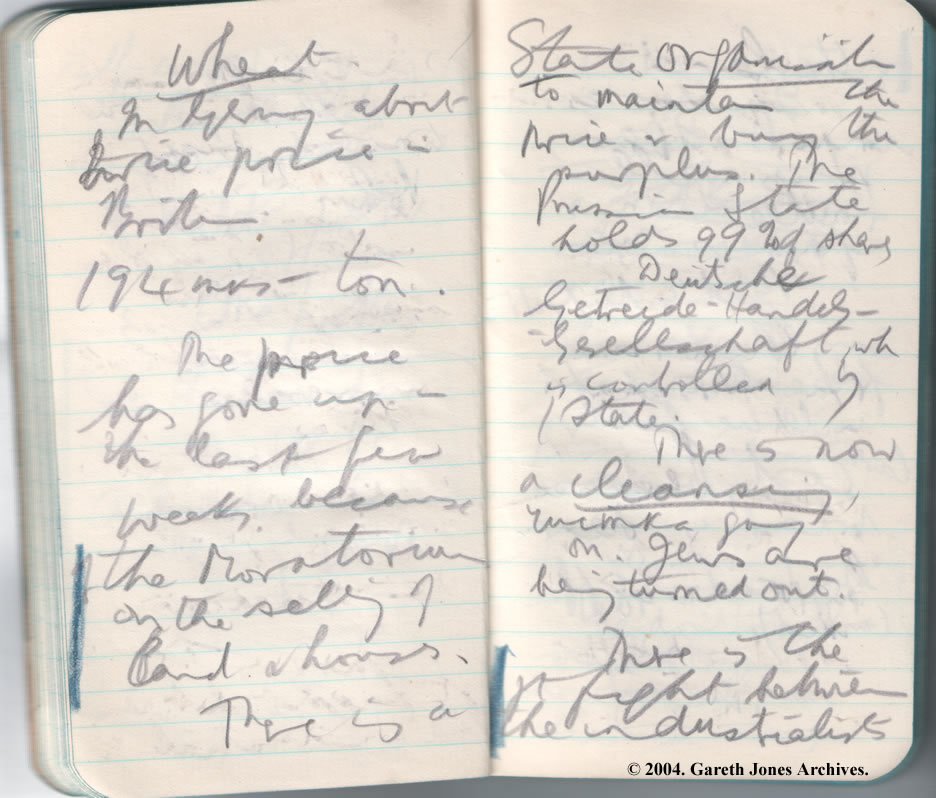 Wheat.
In Germany about
twice price in
Britain.
194 mks – ton.
The price
has gone up in
the last few
weeks because
of the Moratorium
on the selling of
land & houses.
There is a
State Organisation
to maintain the
price & buy the
surplus. The
Prussian State
holds 99% of shares
Deutsche
Getreide-Handels-
-Gesellschaft, wh
is controlled by
State.
There is now
a cleansing,
going
on. Jews are
being turned out.
There is the
gt fight between
the industrialists
© 2004. Gareth Jones Archives.